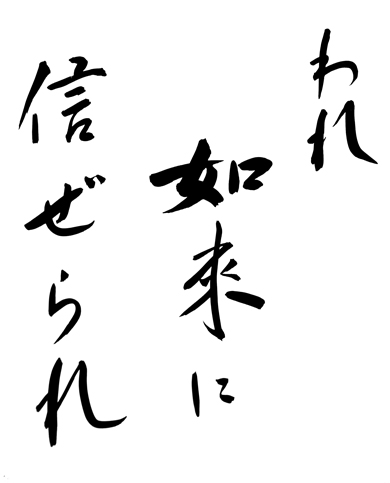 われ
如来に
信ぜられ